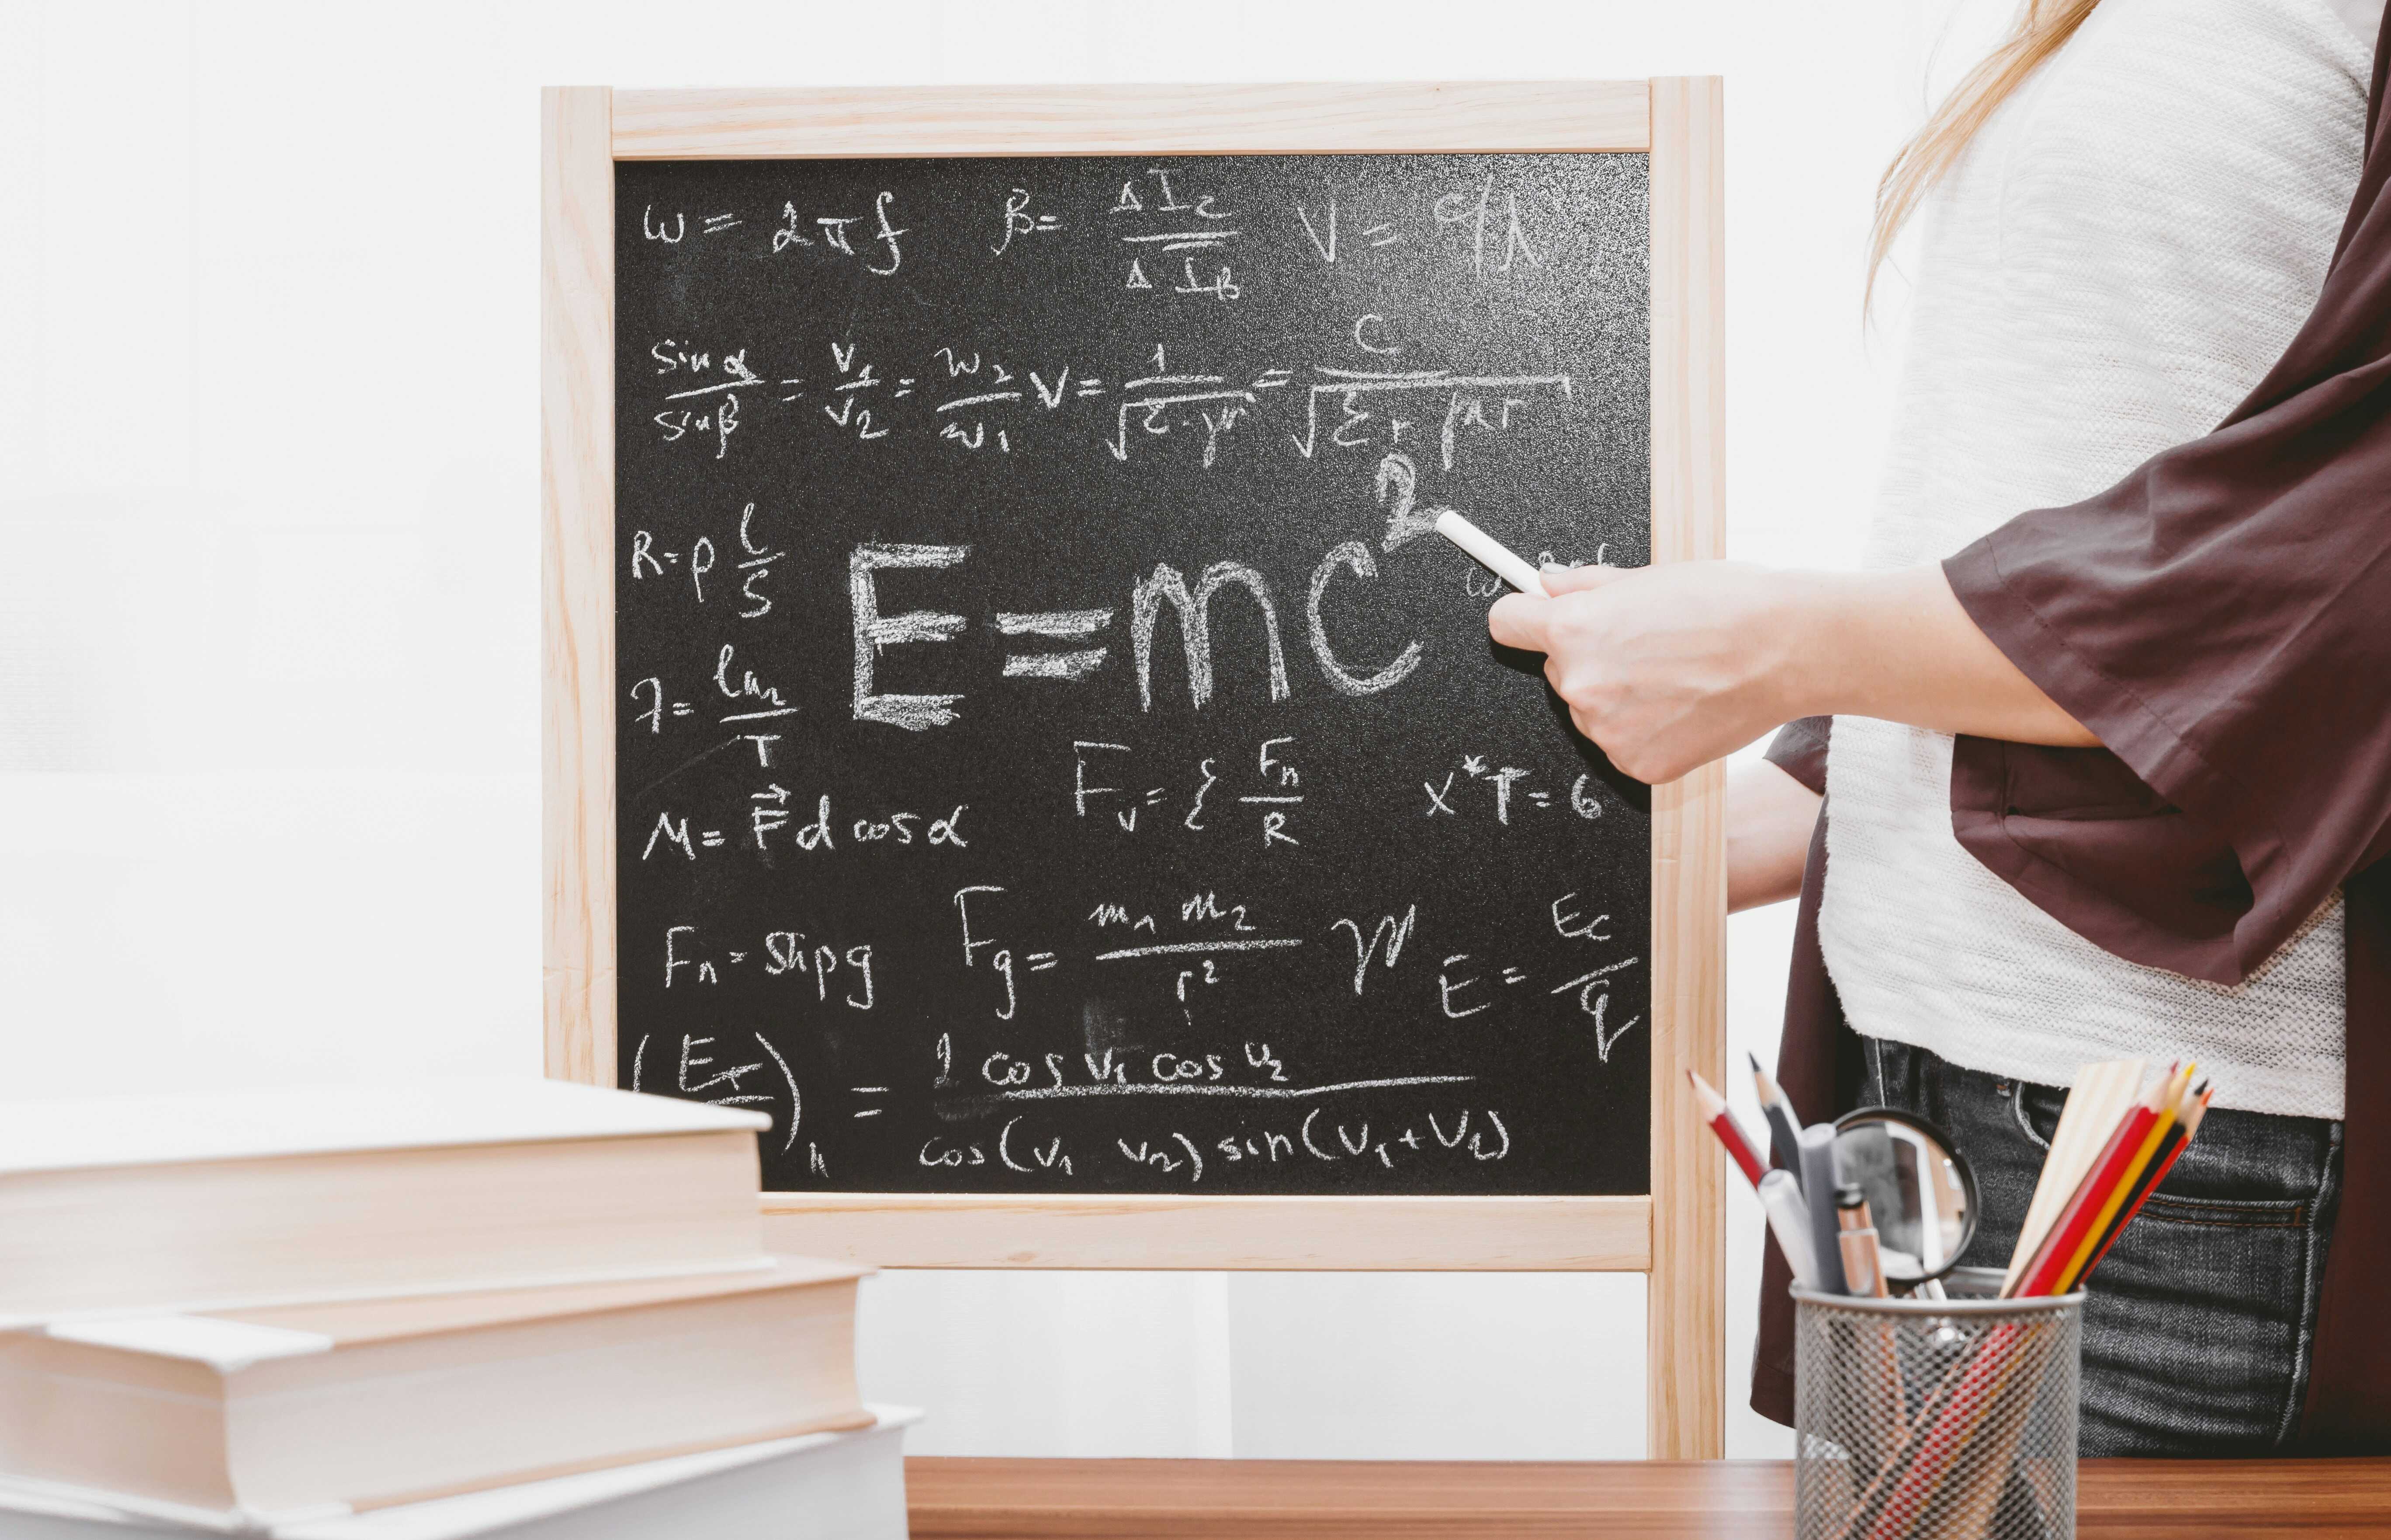 ω = 2πf β = ΔI_C / ΔI_B V = c/λ
sin α / sin β = v₁ / v₂ = w₂ / w₁ V = 1 / √(ε·μ) = C / √(εr μr)
R = ρ l / S
E = mc²
λ = ln2 / T
F_v = ξ F_n / R x*T = 6
M = F⃗ d cos α
F_n = Shρg F_g = m₁ m₂ / r² E = E_c / q
2 cos v₁ cos v₂
= cos(v₁ v₂) sin(v₁+v₂)